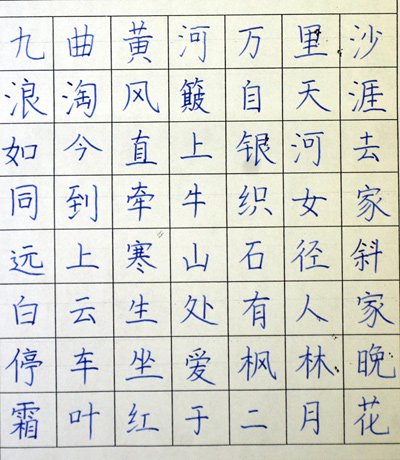 九曲黄河万里沙
浪淘风簸自天涯
如今直上银河去
同到牵牛织女家
远上寒山石径斜
白云生处有人家
停车坐爱枫林晚
霜叶红于二月花